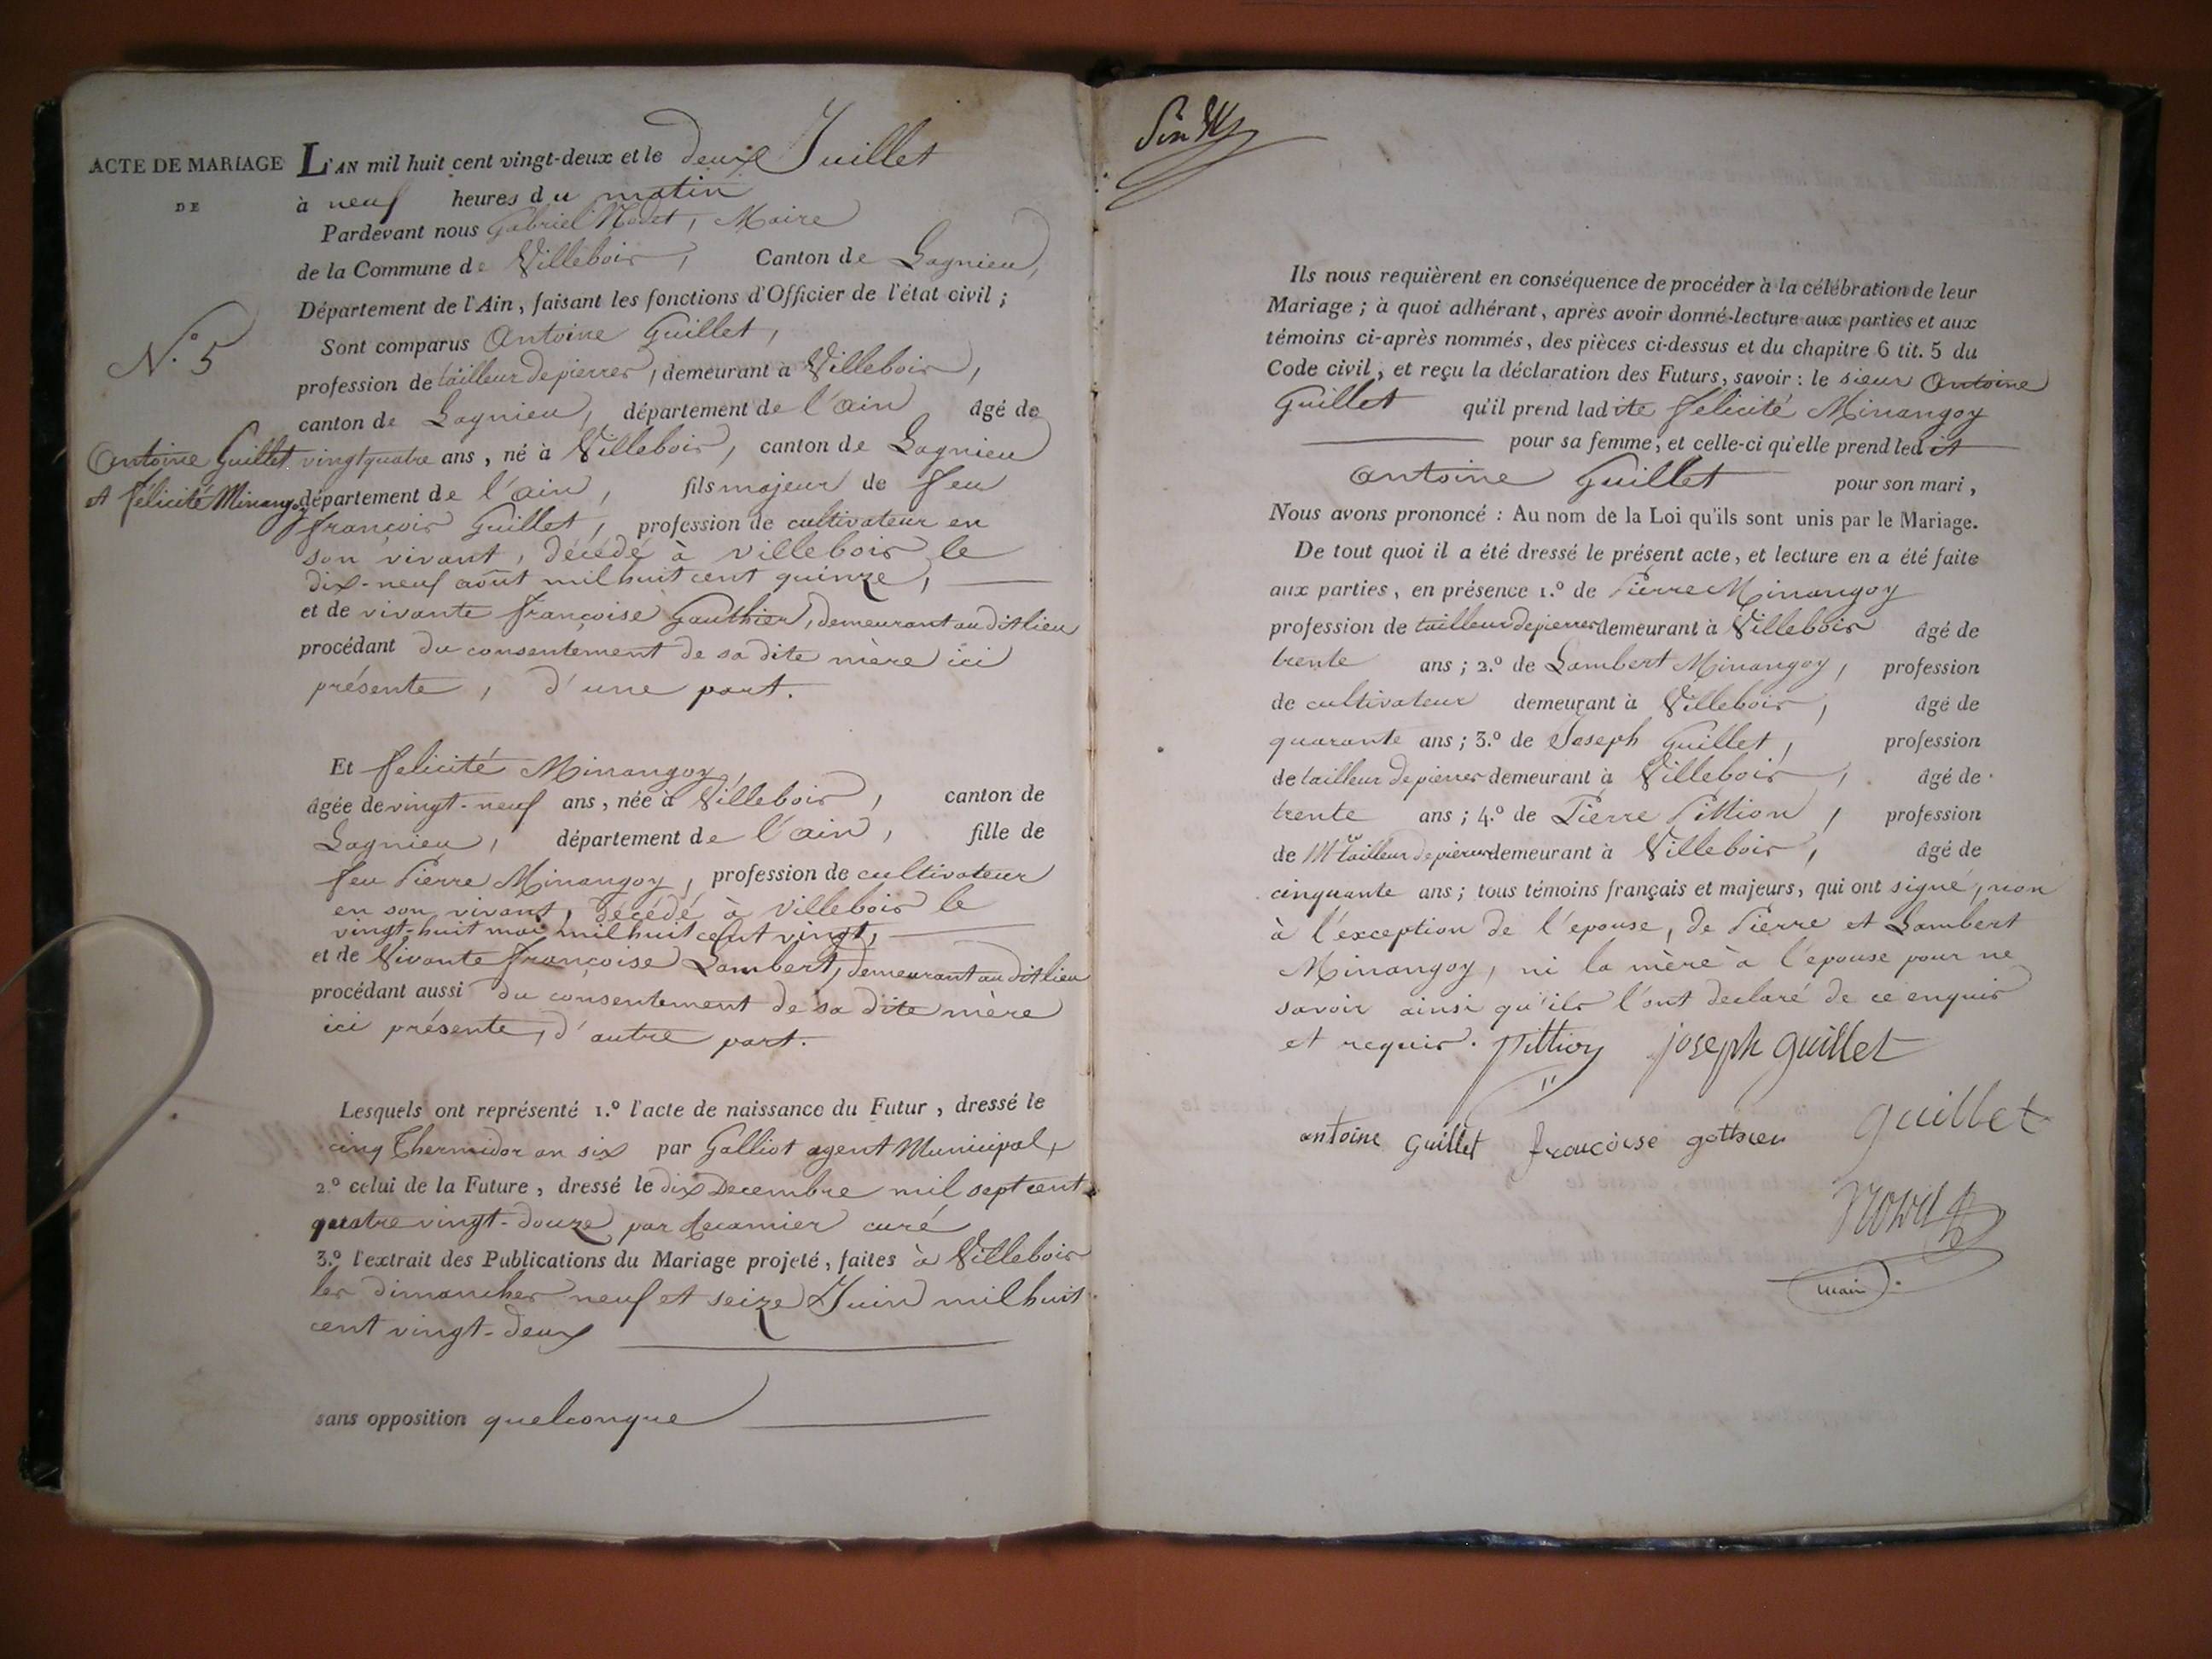 ACTE DE MARIAGE
DE
N.o 5
Antoine Guillet
et félicité Minangoy
L'AN mil huit cent vingt-deux et le deux Juillet
à neuf heures du matin
Pardevant nous Gabriel Maire
de la Commune de Villebois, Canton de Lagnieu,
Département de l'Ain, faisant les fonctions d'Officier de l'état civil ;
Sont comparus Antoine Guillet,
profession de tailleur de pierres, demeurant à Villebois,
canton de Lagnieu, département de l'ain âgé de
vingt quatre ans, né à Villebois, canton de Lagnieu
département de l'ain, fils majeur de feu
françois Guillet, profession de cultivateur en
son vivant, décédé à villebois le
dix-neuf août mil huit cent quinze,
et de vivante françoise Gauthier, demeurant au dit lieu
procédant du consentement de sa dite mère ici
présente, d'une part.
Et félicité Minangoy,
âgée de vingt-neuf ans, née à Villebois, canton de
Lagnieu, département de l'ain, fille de
feu Pierre Minangoy, profession de cultivateur
en son vivant, décédé à Villebois le
vingt-huit mai mil huit cent vingt,
et de Vivante françoise Lambert, demeurant au dit lieu
procédant aussi du consentement de sa dite mère
ici présente, d'autre part.
Lesquels ont représenté 1.o l'acte de naissance du Futur, dressé le
cinq Thermidor an six par Galliot agent Municipal,
2.o celui de la Future, dressé le dix Decembre mil sept cent
quatre vingt-douze par curé
3.o l'extrait des Publications du Mariage projeté, faites à Villebois
les dimanches neuf et seize Juin mil huit
cent vingt-deux
sans opposition quelconque
Ils nous requièrent en conséquence de procéder à la célébration de leur
Mariage ; à quoi adhérant, après avoir donné lecture aux parties et aux
témoins ci-après nommés, des pièces ci-dessus et du chapitre 6 tit. 5 du
Code civil, et reçu la déclaration des Futurs, savoir : le sieur Antoine
Guillet qu'il prend ladite félicité Minangoy
pour sa femme, et celle-ci qu'elle prend ledit
antoine Guillet pour son mari,
Nous avons prononcé : Au nom de la Loi qu'ils sont unis par le Mariage.
De tout quoi il a été dressé le présent acte, et lecture en a été faite
aux parties, en présence 1.o de Pierre Minangoy
profession de tailleur de pierres demeurant à Villebois âgé de
trente ans ; 2.o de Lambert Minangoy, profession
de cultivateur demeurant à Villebois, âgé de
quarante ans ; 3.o de Joseph Guillet, profession
de tailleur de pierres demeurant à Villebois, âgé de
trente ans ; 4.o de Pierre Pittion, profession
de M.e tailleur de pierres demeurant à Villebois, âgé de
cinquante ans ; tous témoins français et majeurs, qui ont signé, non
à l'éxception de l'épouse, de Pierre et Lambert
Minangoy, ni la mère à l'épouse pour ne
savoir ainsi qu'ils l'ont declaré de ce enquis
et requis. Pittion joseph guillet
antoine Guillet françoise gothier guillet
maire